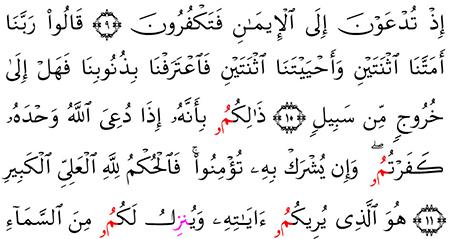 إِذْ تُدْعَوْنَ إِلَى ٱلْإِيمَـٰنِ فَتَكْفُرُونَ ۝٩ قَالُوا۟ رَبَّنَا
أَمَتَّنَا ٱثْنَتَيْنِ وَأَحْيَيْتَنَا ٱثْنَتَيْنِ فَٱعْتَرَفْنَا بِذُنُوبِنَا فَهَلْ إِلَىٰ
خُرُوجٍ مِّن سَبِيلٍ ۝١٠ ذَٰلِكُمُۥ بِأَنَّهُۥ إِذَا دُعِىَ ٱللَّهُ وَحْدَهُۥ
كَفَرْتُمُۥۖ وَإِن يُشْرَكْ بِهِۦ تُؤْمِنُوا۟ۚ فَٱلْحُكْمُ لِلَّهِ ٱلْعَلِىِّ ٱلْكَبِيرِ
۝١١ هُوَ ٱلَّذِى يُرِيكُمُۥ ءَايَـٰتِهِۦ وَيُنزِلُ لَكُمُۥ مِنَ ٱلسَّمَآءِ